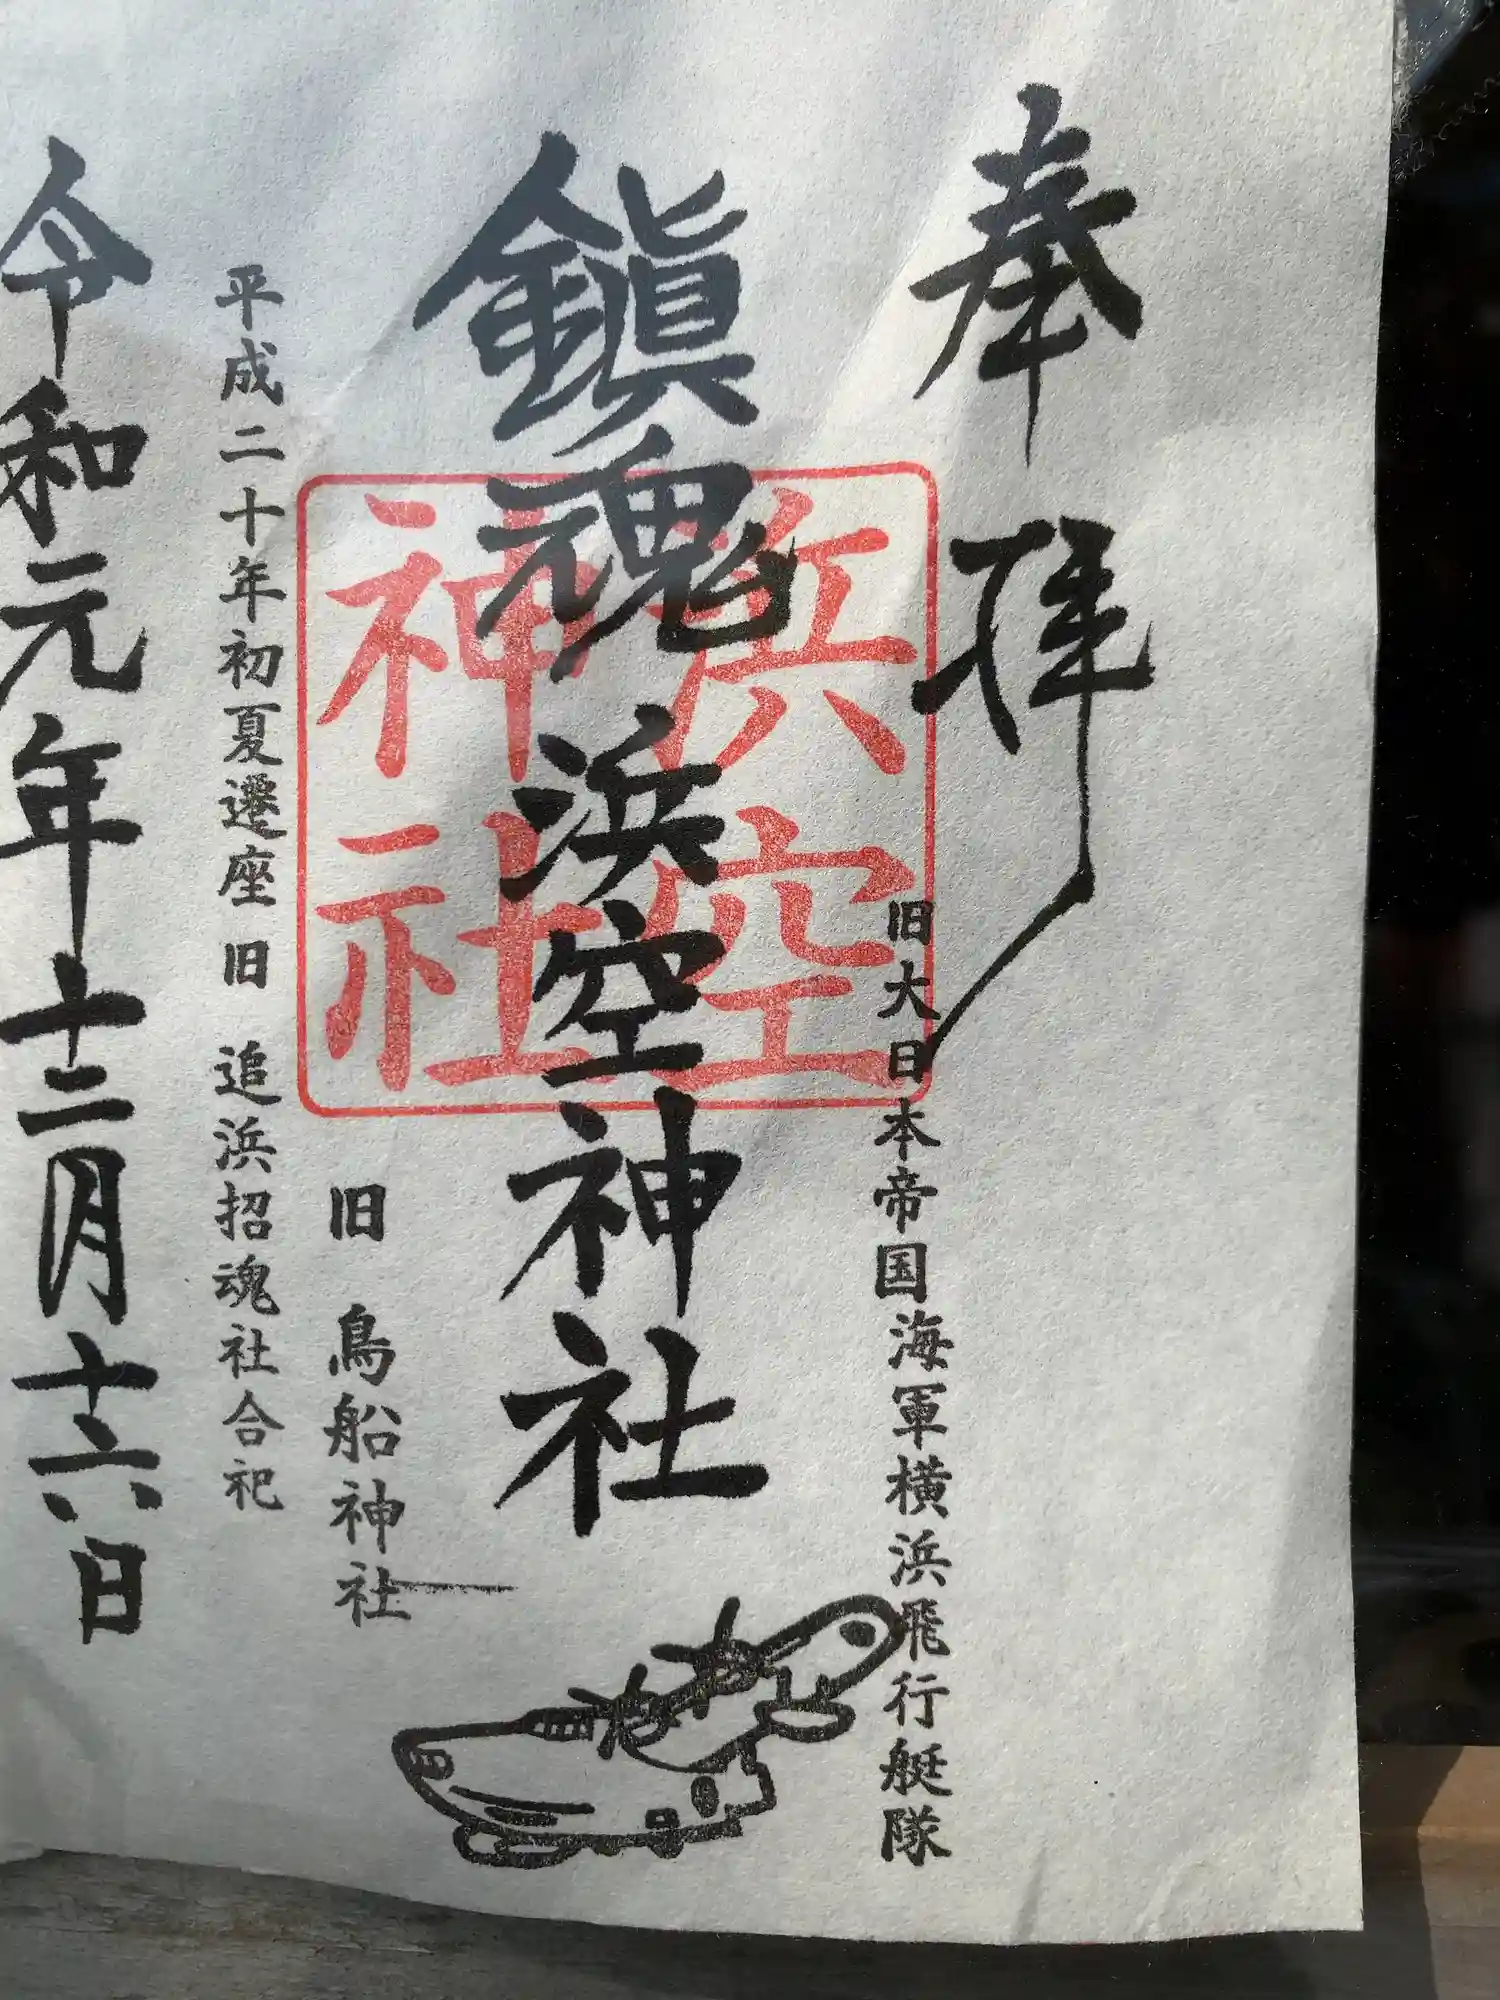 奉拝
旧大日本帝国海軍横浜飛行艇隊
浜空
神社
鎮魂 浜空神社
旧 鳥船神社
平成二十年初夏遷座 旧 追浜招魂社合祀
令和元年十二月十六日